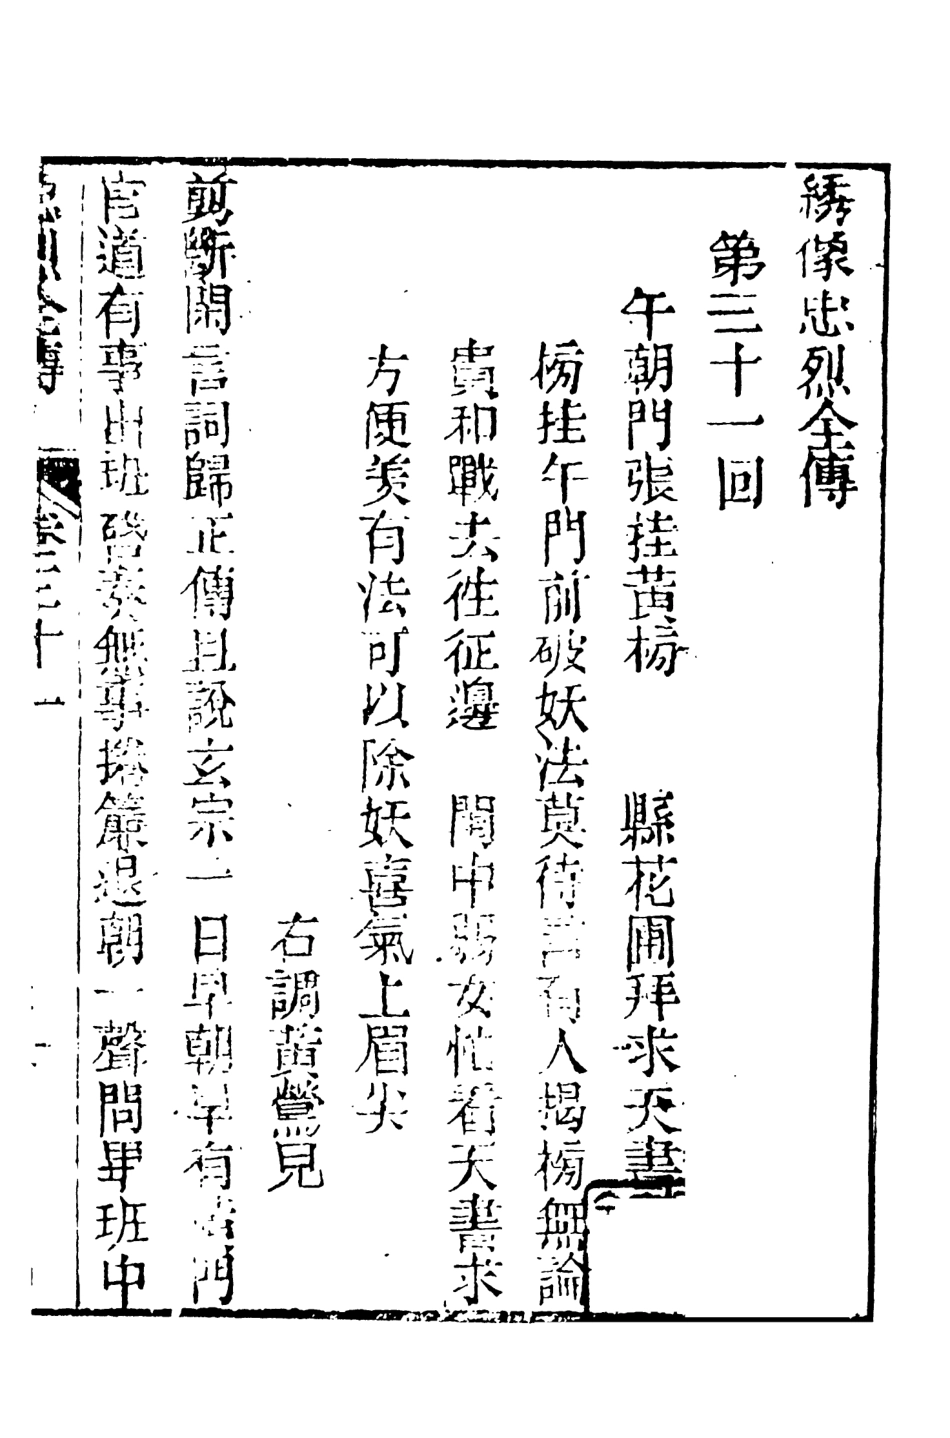 綉像忠烈全傳
第三十一回
午朝門張挂黃榜　縣花圃拜求天書
榜挂午門前破妖法莫待言有人揭榜無論
貴和戰去徃征邊　閨中弱女忙看天書求
方便羨有法可以除妖喜氣上眉尖
右調黃鶯兒
剪斷閑言詞歸正傳且說玄宗一日早朝早有黃門
官道有事出班啓奏無事捲簾退朝一聲問畢班中
忠烈全傳　卷三十一